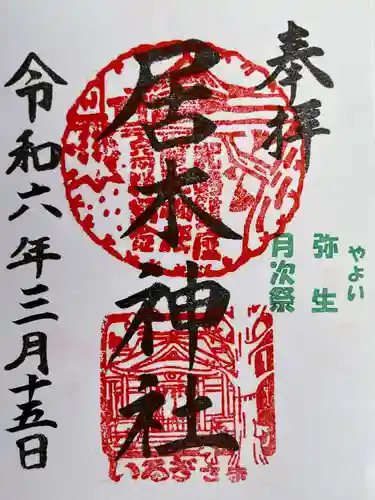 奉拝
やよい
弥生
月次祭
居木神社
令和六年三月十五日
いるぎさき